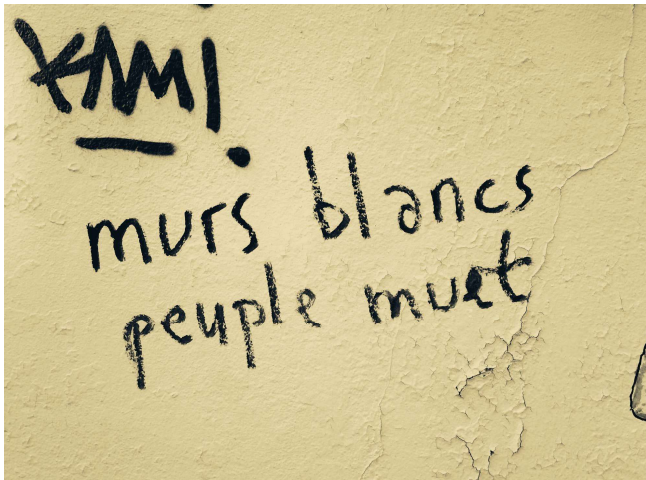 KAMI
murs blancs
peuple muet